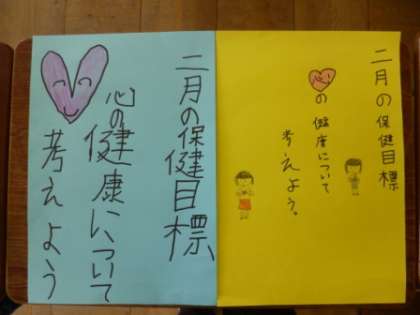 二月の保健目標
の健康について
考えよう。
二月の保健目標
心の健康について
考えよう